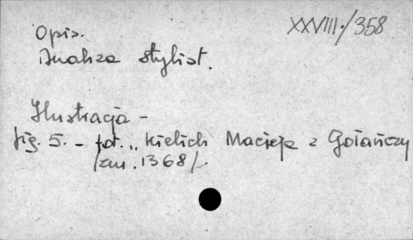 XXVIII./358
Opis.
Analiza stylist.
Ilustracja -
fig. 5. - fot. „ Kielich Macieja z Gołańczy
/zm. 1368/.